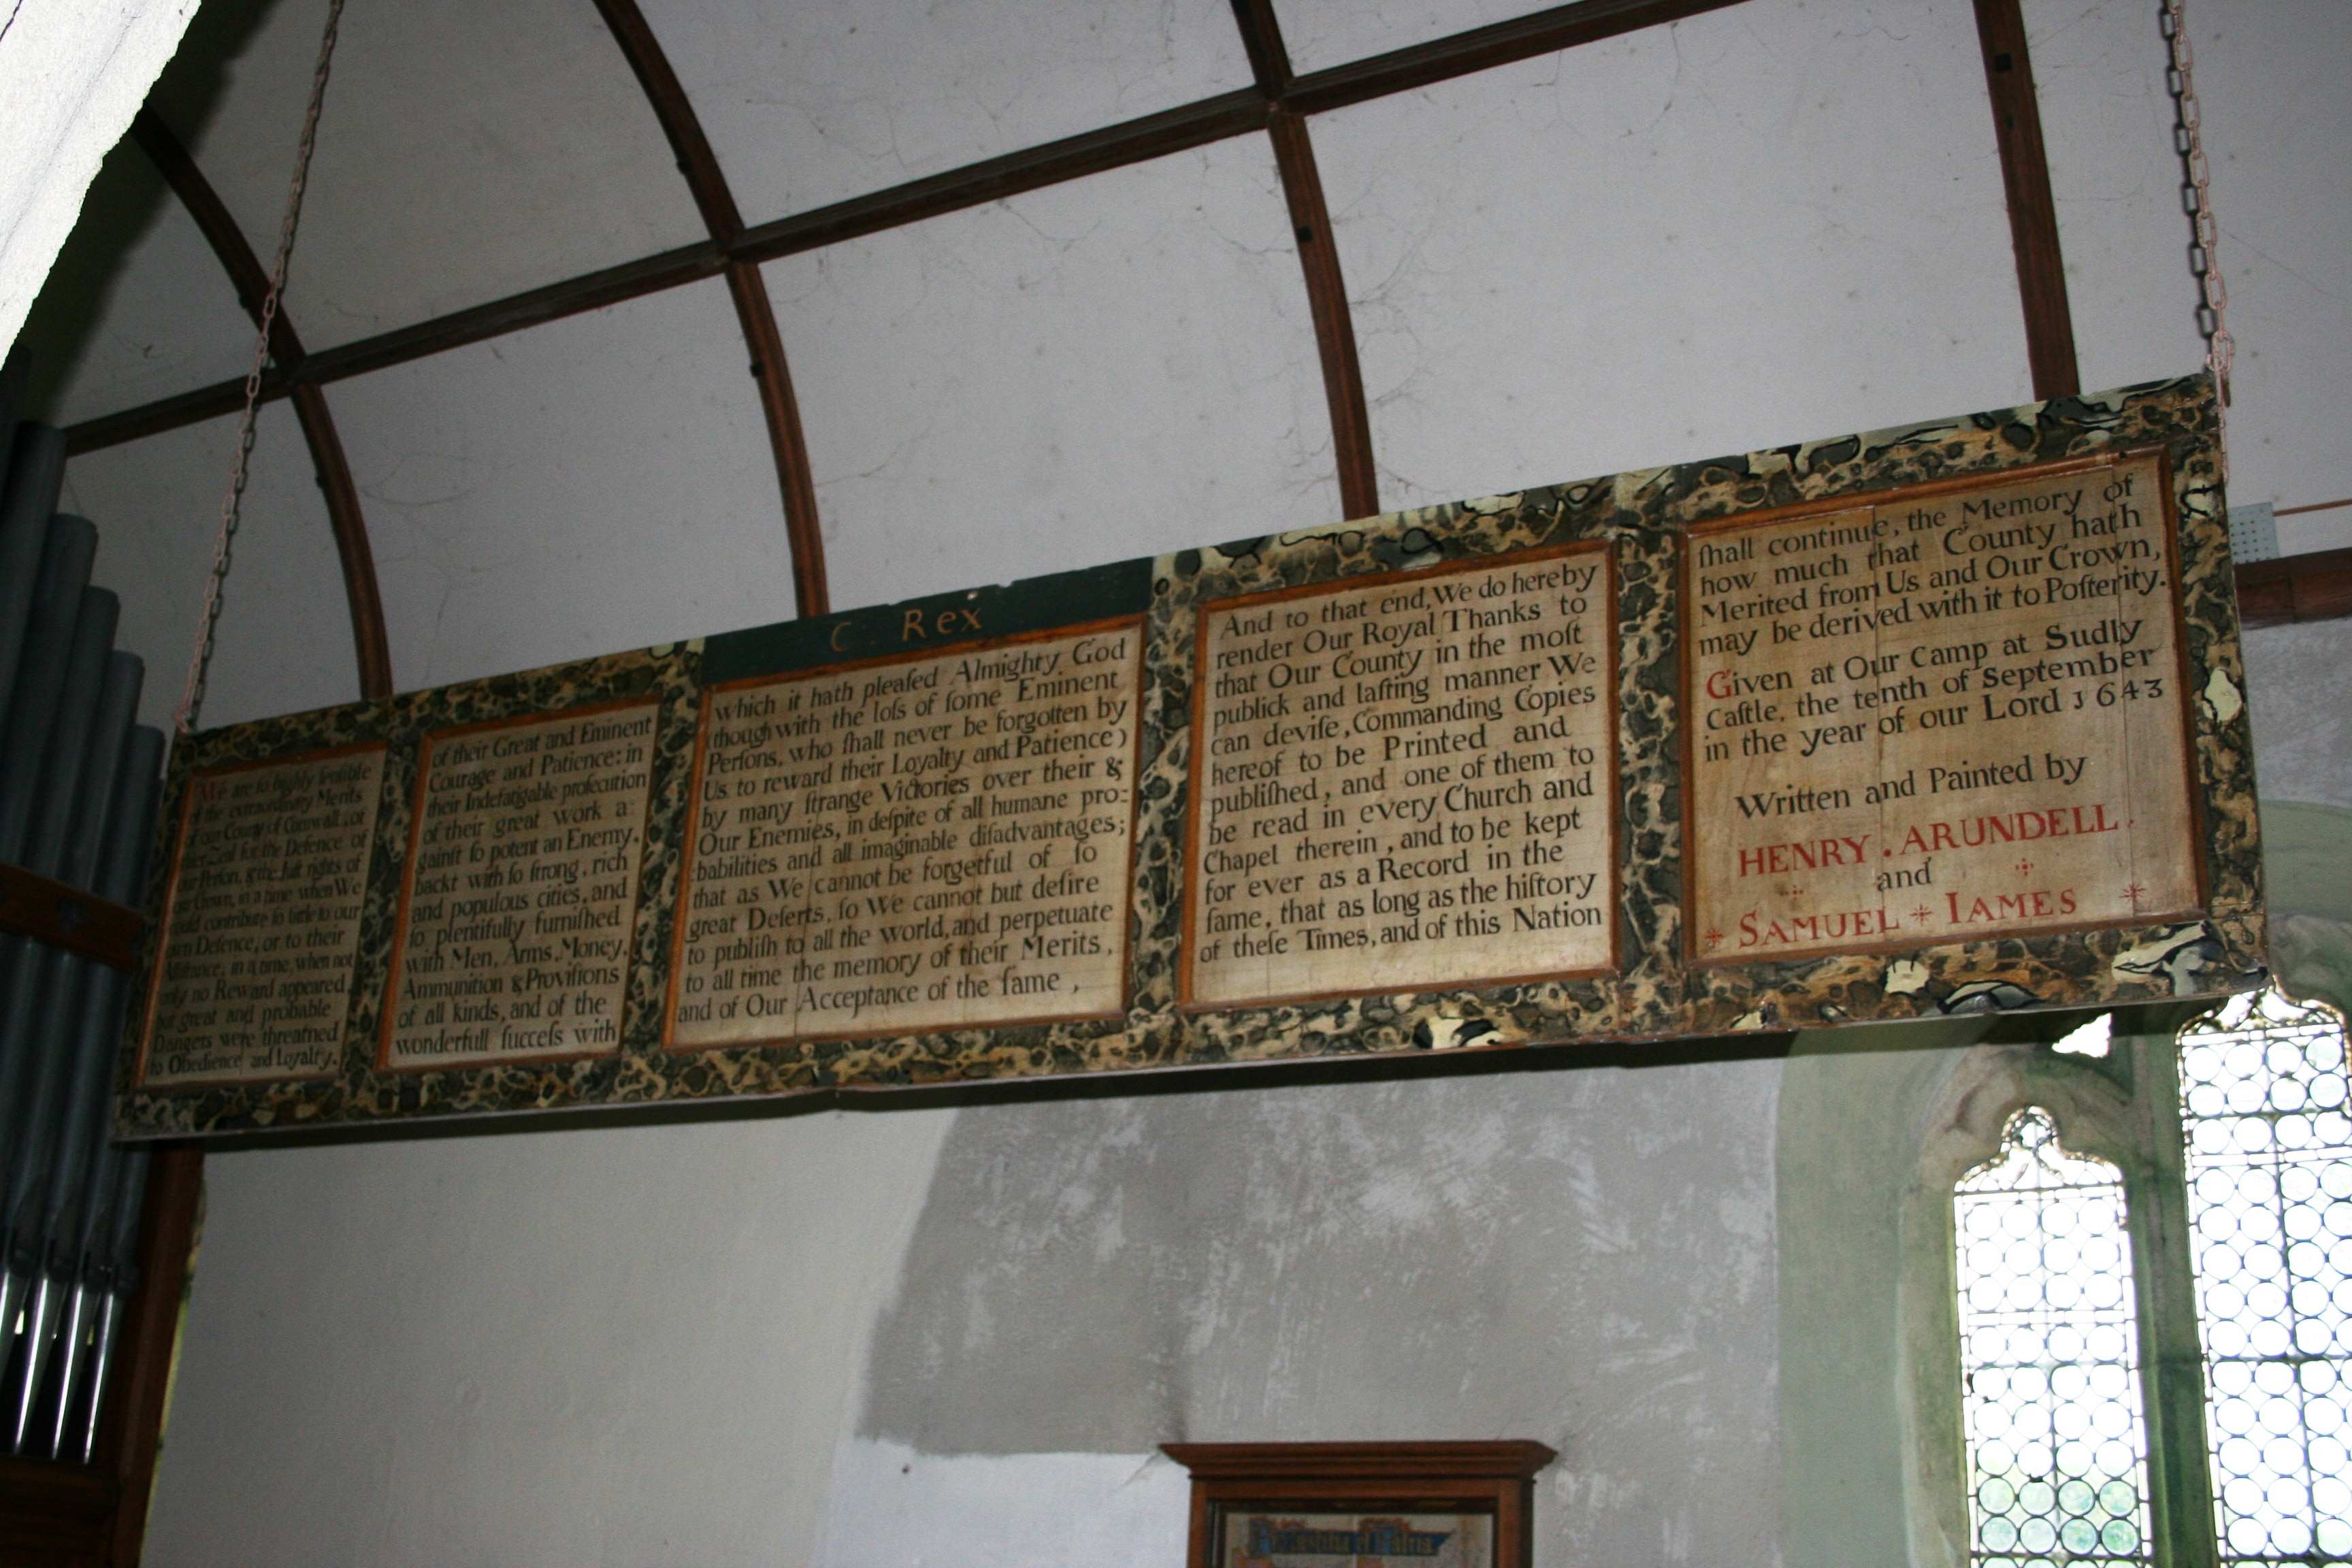 C. Rex
We are so highly ſenſible
of the extraordinary Merits
of our County of Cornwall, of
their Zeal for the Defence of
our Perſon, & the juſt rights of
our Crown, in a time when We
could contribute ſo little to our
own Defence, or to their
Aſſiſtance; in a time, when not
only no Reward appeared,
but great and probable
Dangers were threatned
to Obedience and Loyalty.
of their Great and Eminent
Courage and Patience: in
their Indefatigable proſecution
of their great work a:
gainſt ſo potent an Enemy,
backt with ſo ſtrong, rich
and populous cities, and
ſo plentifully furniſhed
with Men, Arms, Money,
Ammunition & Proviſions
of all kinds, and of the
wonderfull ſucceſs with
which it hath pleaſed Almighty God
(though with the loſs of ſome Eminent
Perſons, who ſhall never be forgotten by
Us to reward their Loyalty and Patience)
by many ſtrange Victories over their &
Our Enemies, in deſpite of all humane pro:
babilities and all imaginable diſadvantages;
that as We cannot be forgetful of ſo
great Deſerts, ſo We cannot but deſire
to publiſh to all the world, and perpetuate
to all time the memory of their Merits,
and of Our Acceptance of the ſame,
And to that end, We do hereby
render Our Royal Thanks to
that Our County in the moſt
publick and laſting manner We
can deviſe, Commanding Copies
hereof to be Printed and
publiſhed, and one of them to
be read in every Church and
Chapel therein, and to be kept
for ever as a Record in the
ſame, that as long as the hiſtory
of theſe Times, and of this Nation
ſhall continue, the Memory of
how much that County hath
Merited from Us and Our Crown,
may be derived with it to Poſterity.
Given at Our Camp at Sudly
Caſtle, the tenth of September
in the year of our Lord 1643
Written and Painted by
HENRY . ARUNDELL .
and
SAMUEL * IAMES